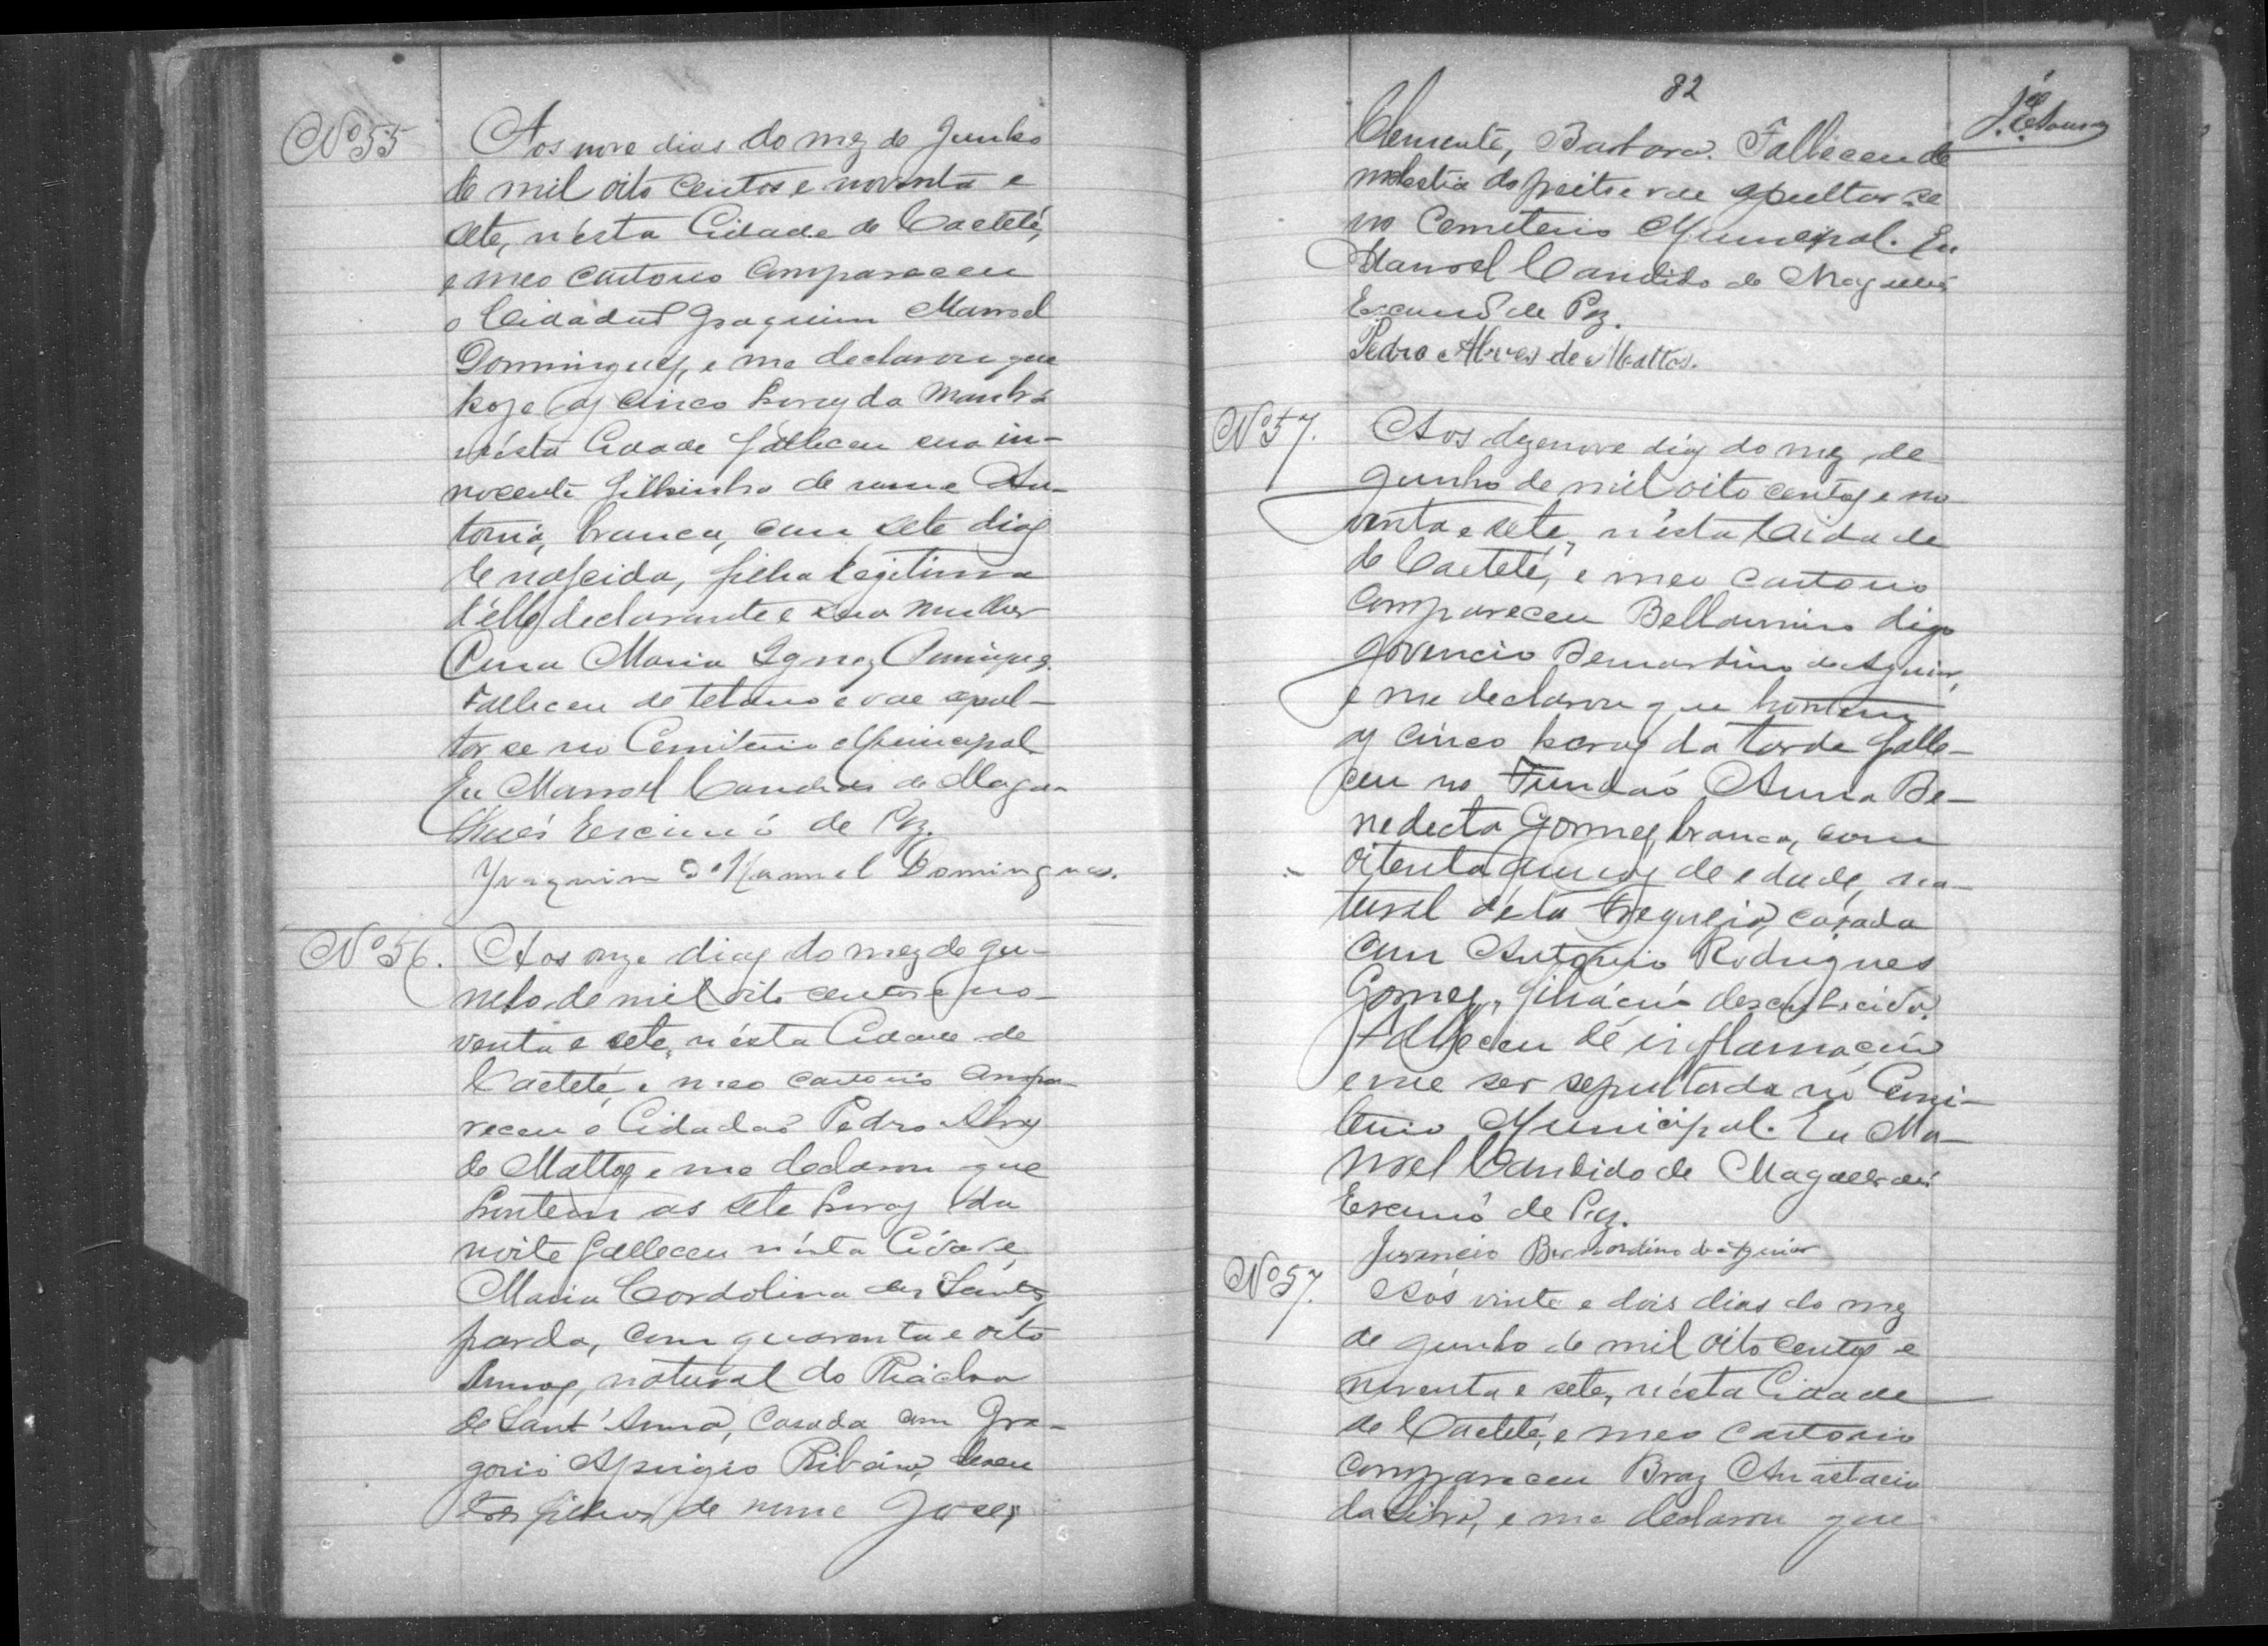 Nº 55
Aos nove dias do mez de Junho
de mil oito centos e noventa e
sete, n'ésta Cidade de Caeteté,
e meo cartorio compareceu
o Cidadaõ Joaquim Manoel
Domingues, e me declarou que
hoje as cinco horas da manhã
n'ésta Cidade falleceu sua in-
nocente filhinha de nome An-
tonia, branca, com sete dias
de nascida, filha legitima
d'elle declarante e sua mulher
Maria Ignez
Falleceu de tetano e vae sepul-
tar se no Cemiterio Municipal
Eu Manoel Candido de Maga-
lhães Escrivaõ de Paz.
Joaquim Manuel Domingues.
Nº 56.
Aos onze dias do mez de Ju-
nho de mil oito centos e no-
venta e sete, n'ésta Cidade de
Caeteté, e meo cartorio compa-
receu o Cidadaõ Pedro Alves
de Mattos e me declarou que
hontem as sete horas da
noite falleceu n'ésta Cidade,
Maria Cordolina dos Santos,
parda, com quarenta e oito
annos, natural do Riacho
de Sant'Anna, casada com Gre-
gorio Aprigio Ribeiro, deixou
tres filhos de nome José,
82
Clemente, Barbara. Falleceu de
molestia do peito e vae sepultar-se
no Cemiterio Municipal. Eu
Manoel Candido de Magalhães
Escrivaõ de Paz.
Pedro Alves de Mattos.
Nº 57.
Aos dezenove dias do mez de
Junho de mil oito centos e no
venta e sete, n'ésta Cidade
de Caeteté, e meo cartorio
compareceu Bellarmino digo
Jovencio Bernardino de Aguiar,
e me declarou que hontem
as cinco horas da tarde falle-
ceu no Fundaõ Anna Be-
nedicta Gomes, branca, com
oitenta annos de edade, na-
tural désta Freguesia, casada
com Antonio Rodrigues
Gomes, filiaçaõ desconhecida.
Falleceu de inflamaçaõ
e vae ser sepultada no Cemi-
terio Municipal. Eu Ma-
noel Candido de Magalhães
Escrivaõ de Paz.
Juvencio Bernardino de Aguiar
Nº 57.
Aos vinte e dois dias do mez
de Junho de mil oito centos e
noventa e sete, n'ésta Cidade
de Caeteté, e meo cartorio
compareceu Braz Anastacio
da Silva, e me declarou que